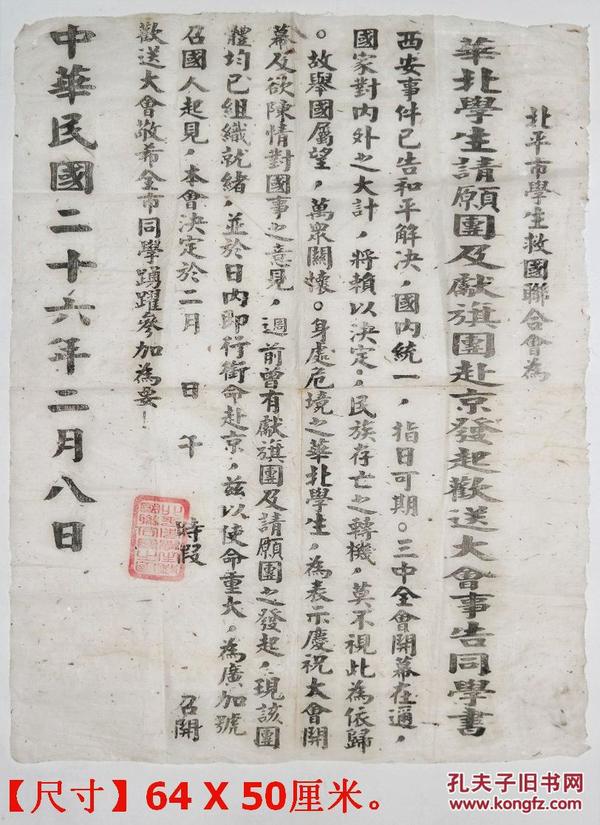 北平市學生救國聯合會為
華北學生請願團及獻旗團赴京發起歡送大會事告同學書
西安事件已告和平解决，國内統一，指日可期。三中全會開幕在邇，
國家對内外之大計，將賴以決定，民族存亡之轉機，莫不視此為依歸
。故舉國屬望，萬眾關懷。身處危境之華北學生，為表示慶祝大會開
幕及欲陳情對國事之意見，週前曾有獻旗團及請願團之發起，現該團
體均已組織就緒，並於日内即行銜命赴京，兹以使命重大，為廣加號
召國人起見，本會決定於二月　日　午　　時假　　　　召開
歡送大會敬希全市同學踴躍參加為要！
中華民國二十六年二月八日
【尺寸】64 X 50厘米。
孔夫子旧书网
www.kongfz.com